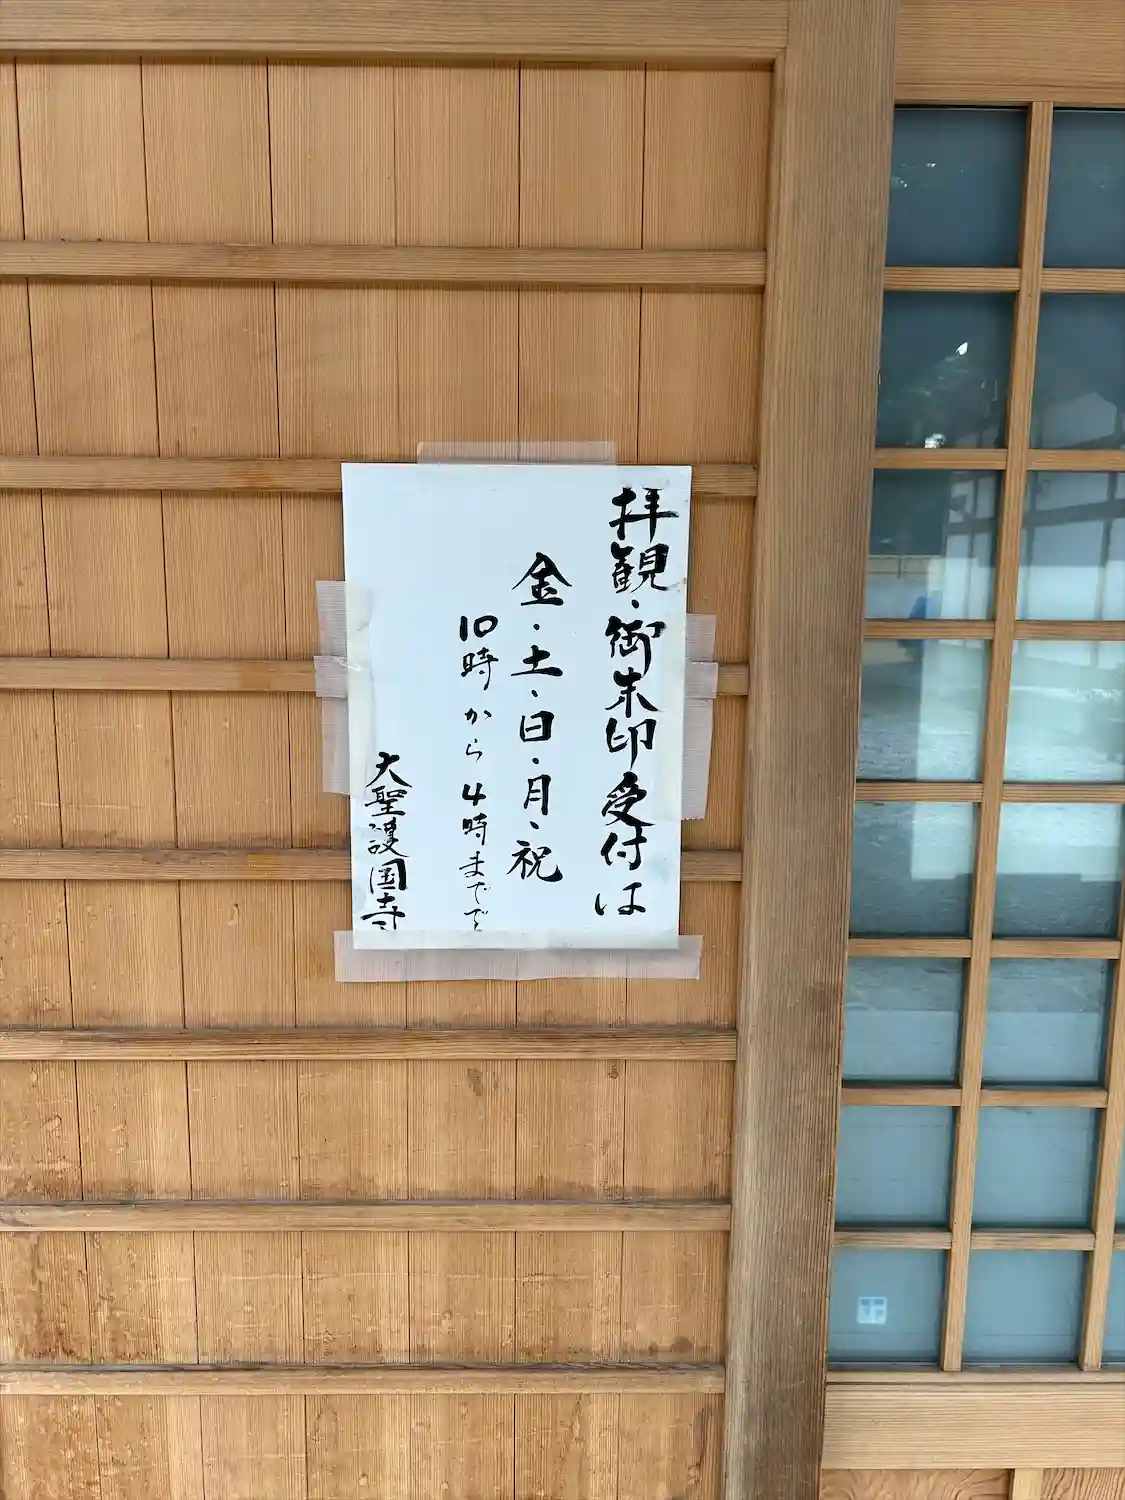 拝観・御朱印受付は
金・土・日・月・祝
10時から4時までで
大聖護国寺